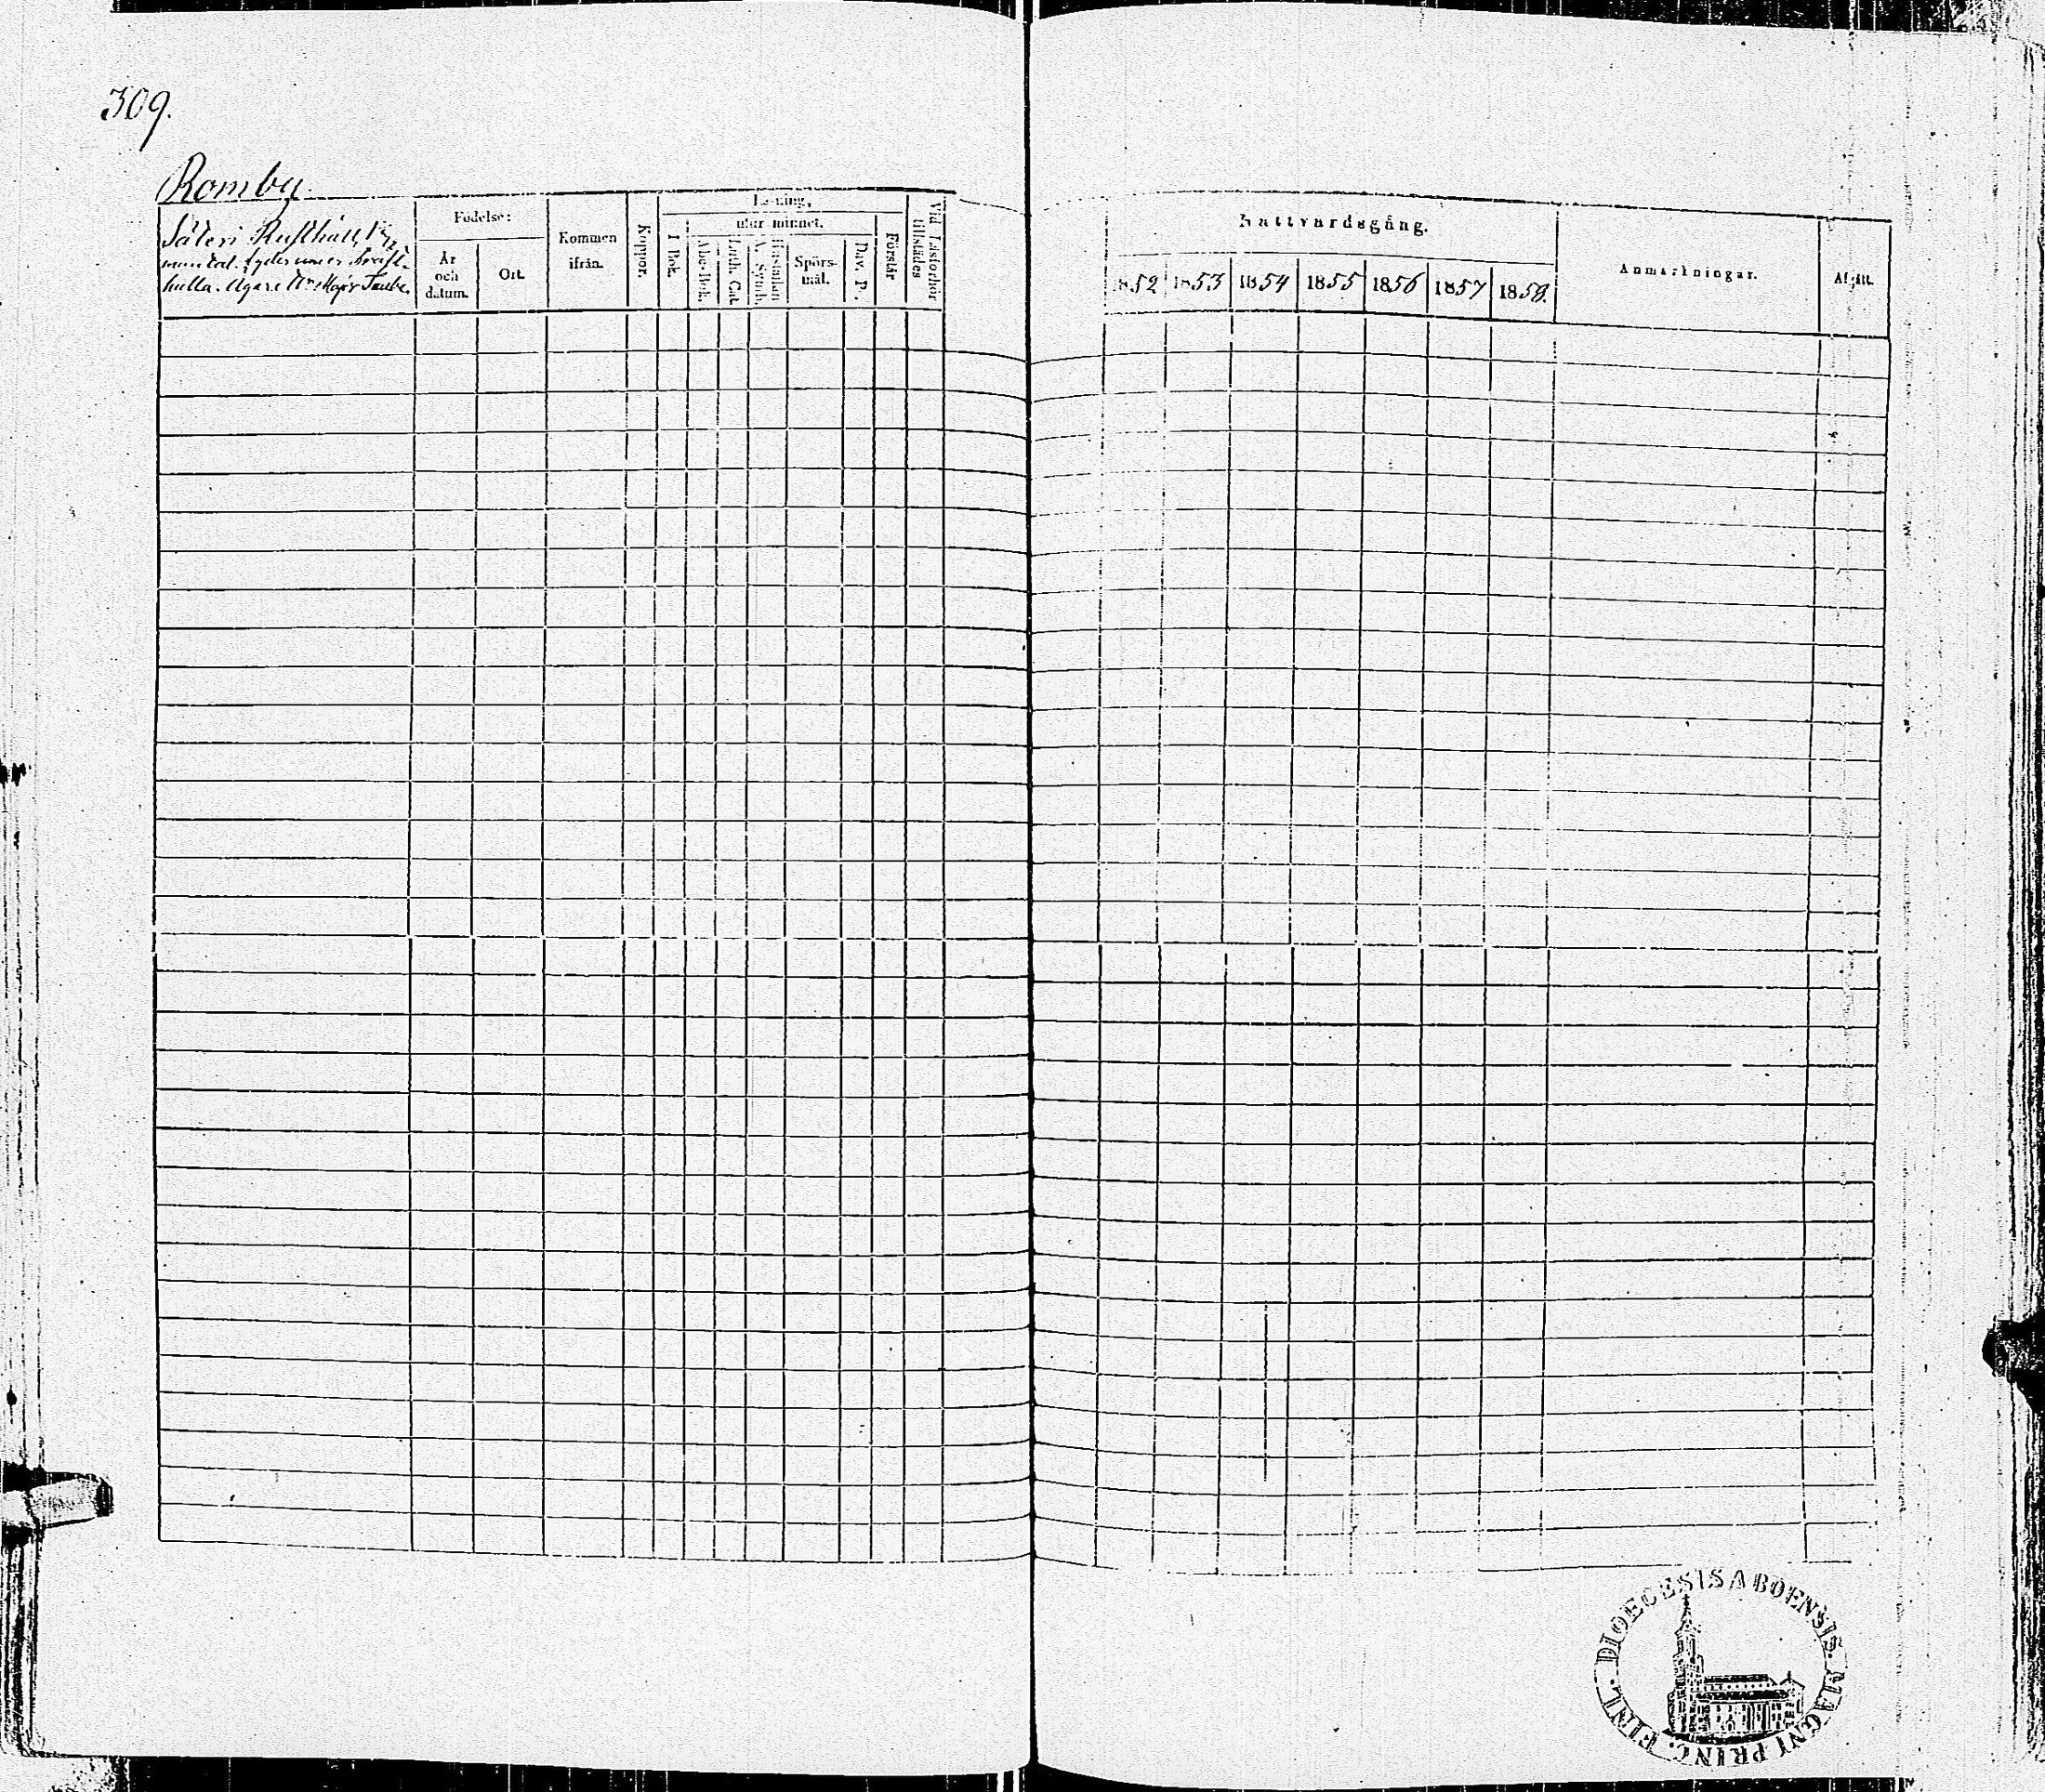 309.
Romby.
Säteri Rusthåll, 1/2
mantal. lyder under
hulla. Ägare Major Taube.
Födelse:
År
och
datum.
Ort.
Kommen
ifrån.
Koppor.
Läsning,
utur minnet.
I Bok.
Abc-Bok.
Luth. Cat.
A. Symb.
Hustaflan
Spörs-
mål.
Dav. P.
Förstår
Vid Läsförhör
tillstädes
Nattvardsgång.
1852 1853 1854 1855 1856 1857 1858.
Anmärkningar.
Afgått.
DIOECESIS ABOENSIS. MAGNI PRINC. FINL.